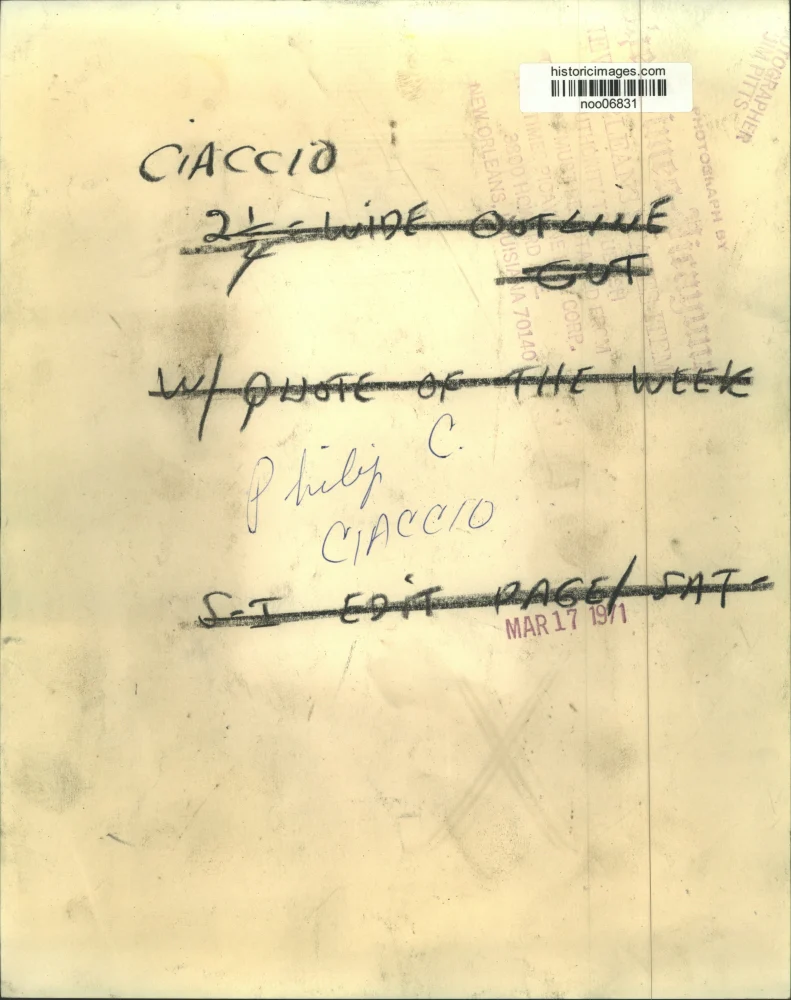 historicimages.com
noo06831
CIACCIO
2 1/2 - WIDE OUTLINE
CUT
W/ QUOTE OF THE WEEK
Philip C.
CIACCIO
S-I EDIT PAGE/ SAT-
MAR 17 1971
PHOTOGRAPH BY
JIM PITTS
PHOTOGRAPHER
NEW ORLEANS, LOUISIANA 70140
CORP.